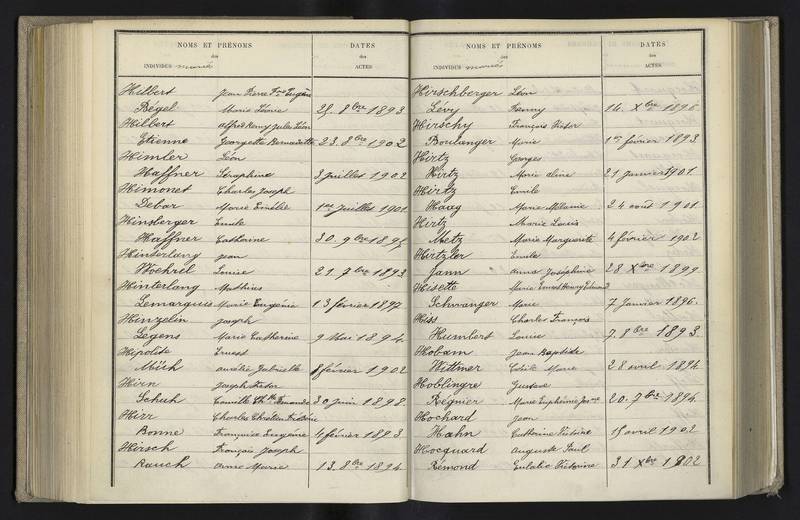 NOMS ET PRÉNOMS DATES
des des
INDIVIDUS mariés ACTES
Hilbert Jean Pierre Fois Eugène
Bégel Marie Léonie 25. 8bre 1893
Hilbert Alfred Remy Jules Léon
Etienne Georgette Bernadette 23. 8bre 1902
Himler Léon
Haffner Séraphine 3 juillet 1902
Himonet Charles Joseph
Debar Marie Emélie 1er juillet 1901
Hinsberger Emile
Haffner Catherine 30. 9bre 1895
Hinterlang Jean
Wochrel Louise 21. 7bre 1893
Hinterlang Mathias
Lemarquis Marie Eugénie 13 février 1897
Hinzelin Joseph
Legens Marie Catherine 9 Mai 1894
Hipolite Ernest
Müh Amélie Gabrielle 8 février 1902
Hirn Joseph
Schuh Camille 30 juin 1898
Hirr Charles Chrétien Frédéric
Bonne Françoise Eugénie 4 février 1893
Hirsch François Joseph
Rauch Anne Marie 13. 8bre 1894
NOMS ET PRÉNOMS DATES
des des
INDIVIDUS mariés ACTES
Hirschberger Léon
Lévy Fanny 16. Xbre 1896
Hirschy François Victor
Boulanger Marie 1er février 1893
Hirtz Georges
Hirtz Marie Aline 21 janvier 1901
Hirtz Emile
Haag Marie Mélanie 24 août 1901
Hirtz Marie Louis
Metz Marie Marguerite 4 février 1902
Hirtzler Emile
Jann Anna Joséphine 28 Xbre 1899
Hisette Marie Ernest Henry Edmond
Schwanger Marie 7 Janvier 1896
Hiss Charles François
Humbert Louise 7. 8bre 1893
Hobam Jean Baptiste
Wittmer Marie 28 avril 1894
Hoblingre Gustave
Régnier Marie Euphémie 20. 7bre 1894
Hochard Jean
Hahn Catherine Victorine 15 avril 1902
Hocquard Auguste Paul
Rémond Eulalie Victorine 31 Xbre 1902